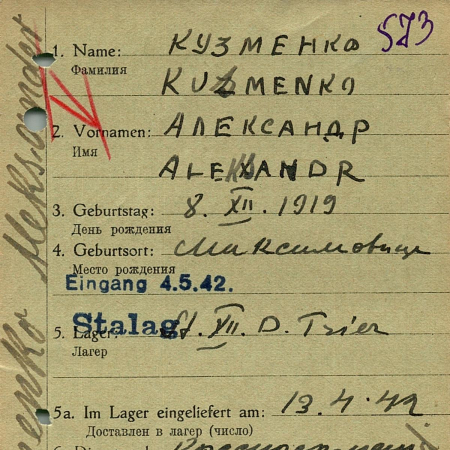 573
1. Name: КУЗМЕНКО
Фамилия
KUZMENKO
2. Vornamen: АЛЕКСАНДР
Имя
ALEXANDR
3. Geburtstag: 8. XII. 1919
День рождения
4. Geburtsort: Максимовице
Место рождения
Eingang 4.5.42.
Stalag
5. Lager: St. XII. D. Trier
Лагер
5a. Im Lager eingeliefert am: 13.4.42
Доставлен в лагер (число)
Aleksander